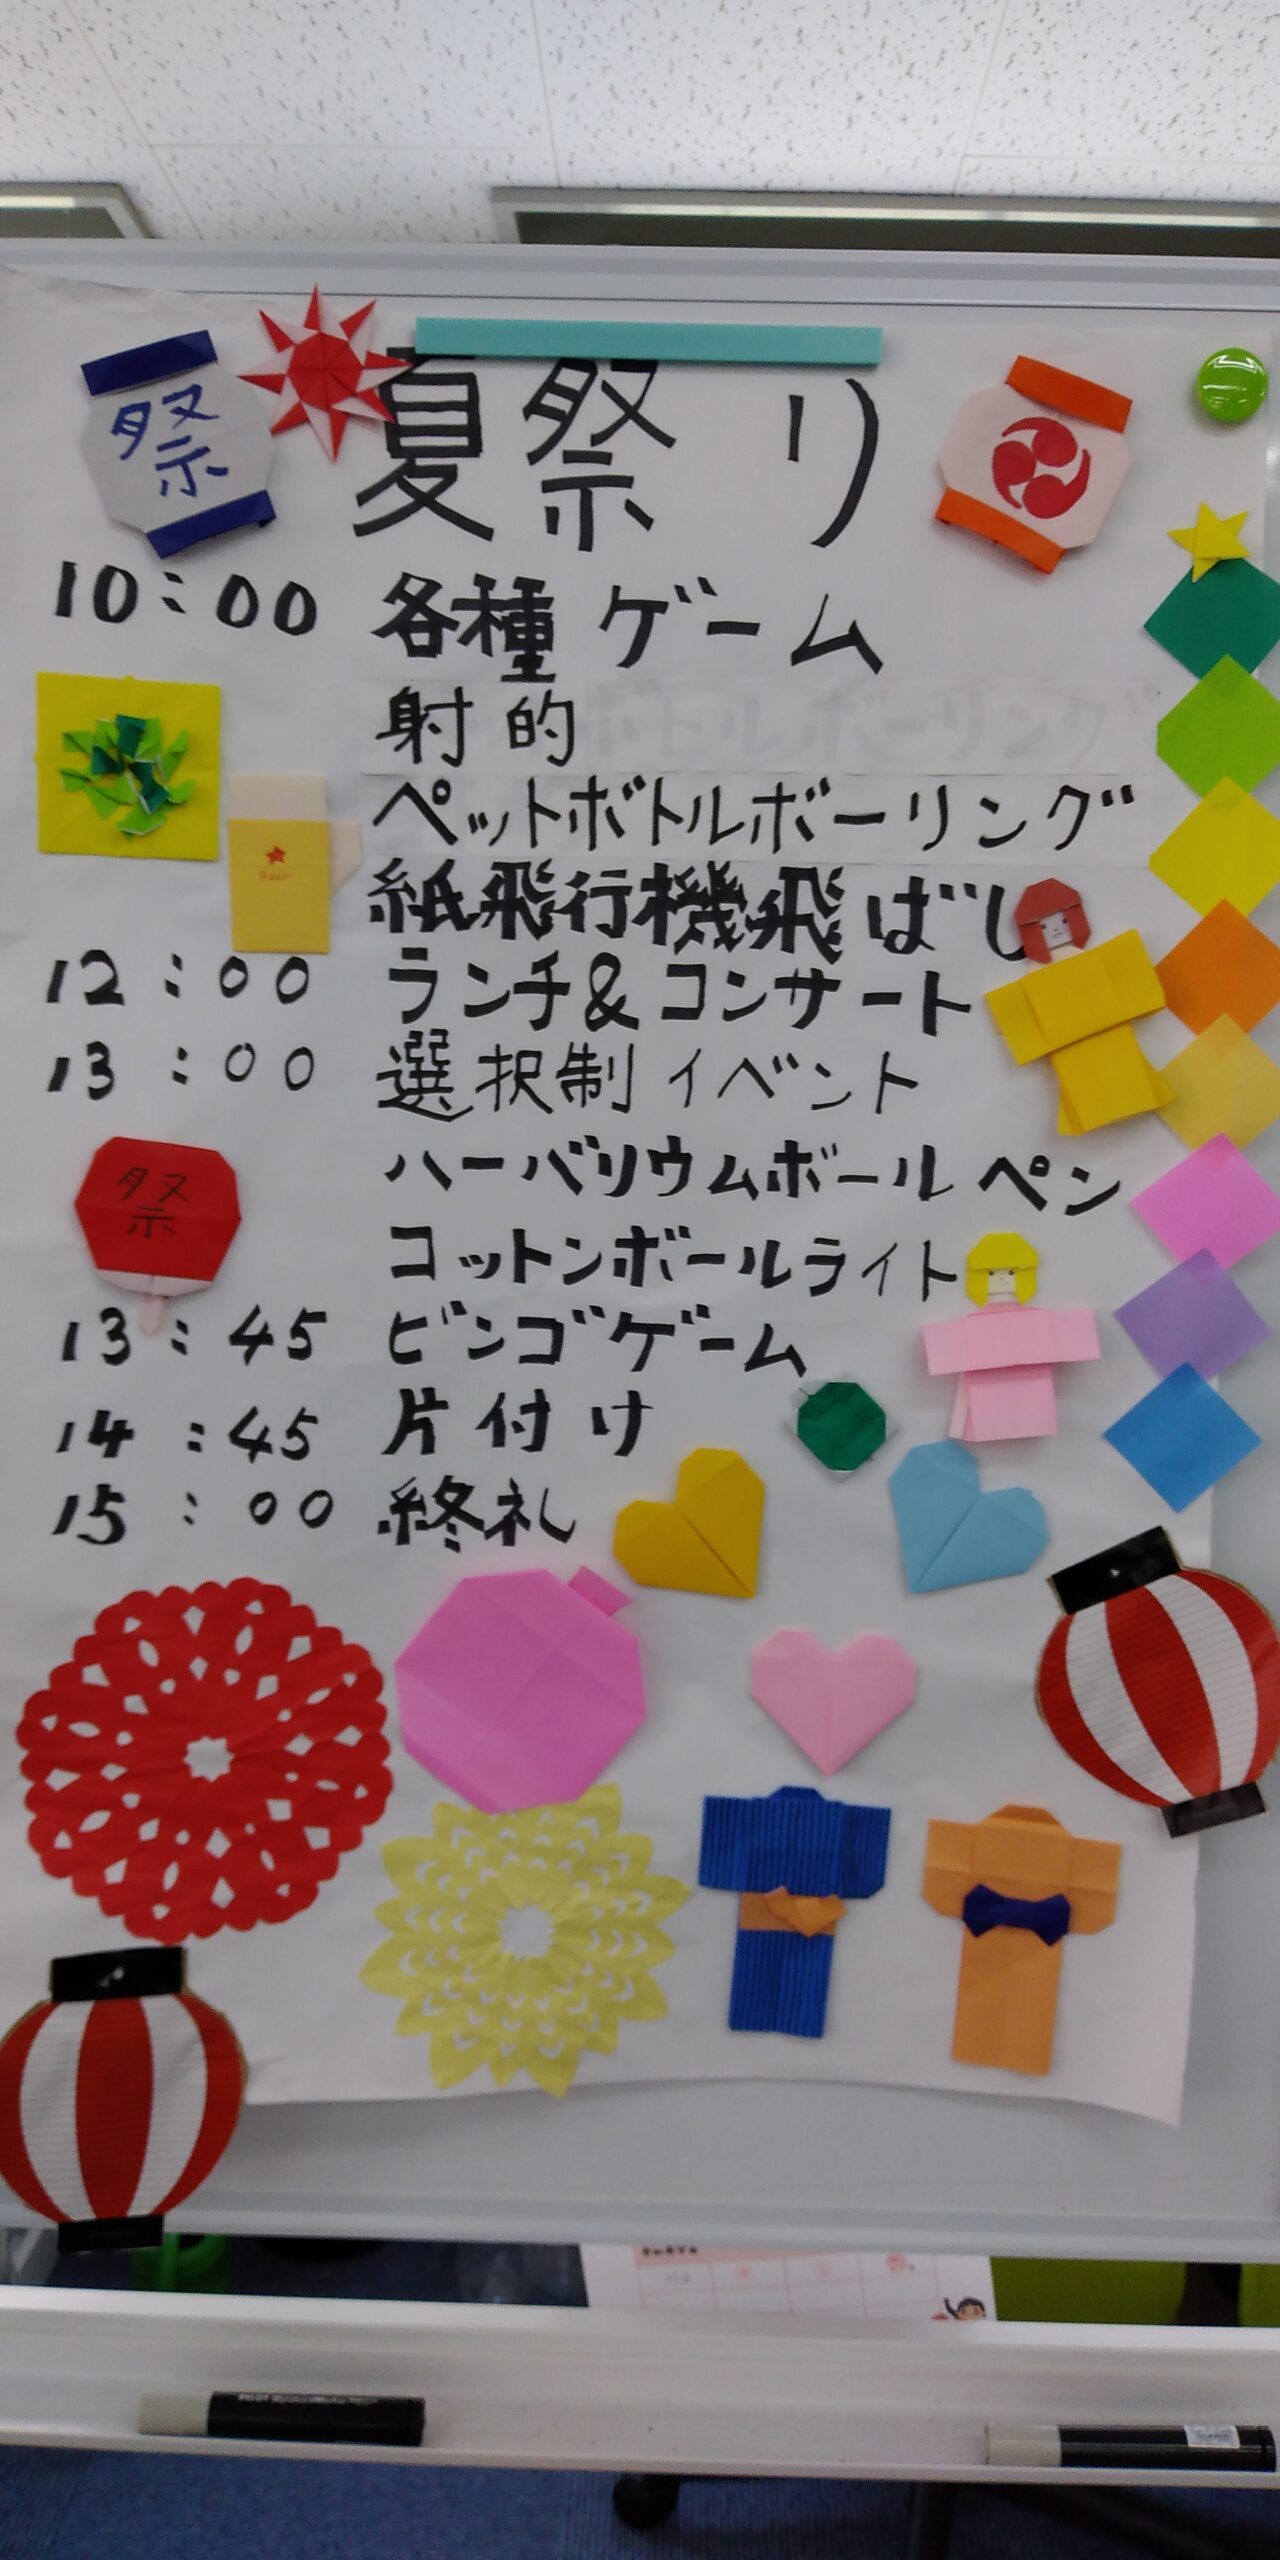 夏祭り
祭
10:00 各種ゲーム
射的
ペットボトルボーリング
紙飛行機飛ばし
12:00 ランチ&コンサート
13:00 選択制イベント
ハーバリウムボールペン
祭
コットンボールライト
13:45 ビンゴゲーム
14:45 片付け
15:00 終礼